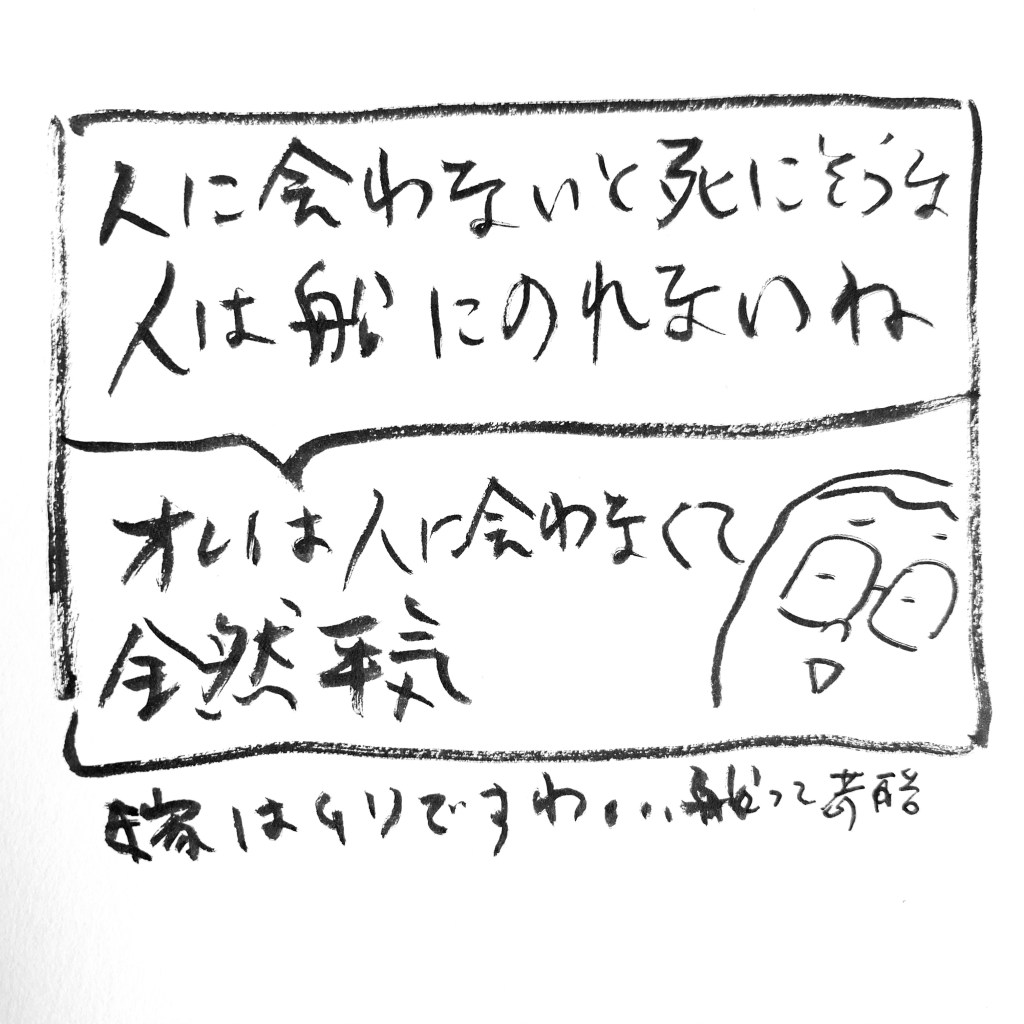 人に会わないと死にそうな
人は船にのれないね
オレは人に会わなくて
全然平気
嫁はムリですわ...船って苛酷